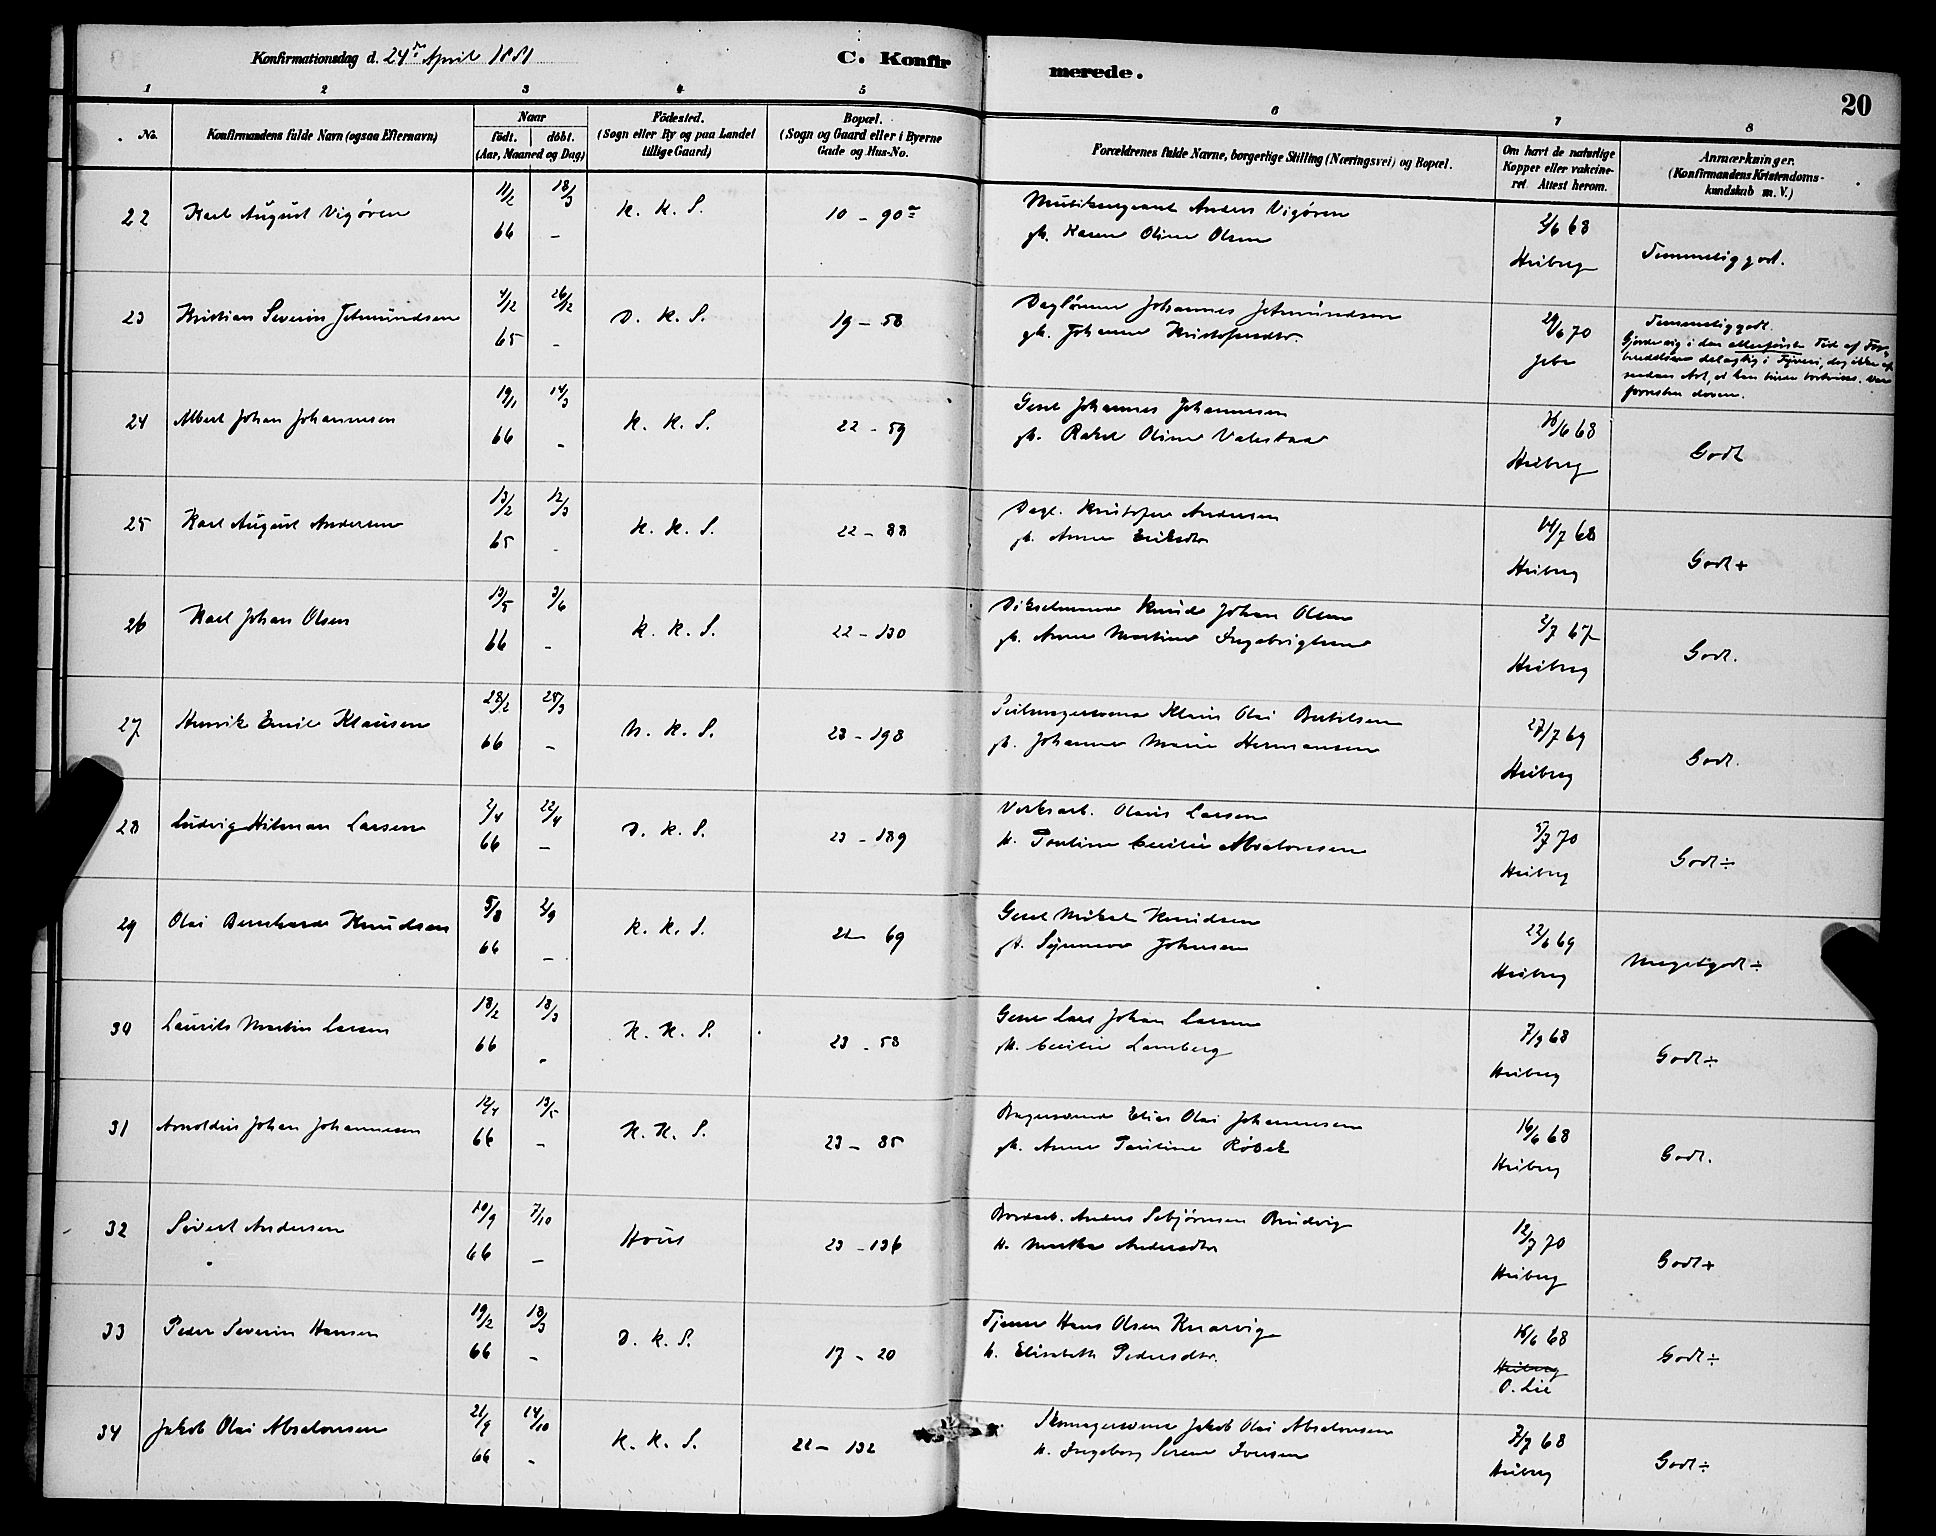 Konfirmationsdag d. 24de April 1881
C. Konfirmerede.
20
1 2 3 4 5 6 7 8
No.
Konfirmandens fulde Navn (ogsaa Efternavn)
Naar
födt. döbt.
(Aar, Maaned og Dag)
Födested.
(Sogn eller By og paa Landet
tillige Gaard)
Bopæl.
(Sogn og Gaard eller i Byerne
Gade og Hus-No.
Forældrenes fulde Navne, borgerlige Stilling (Næringsvei) og Bopæl.
Om havt de naturlige
Kopper eller vakcine-
ret. Attest herom.
Anmærkninger.
(Konfirmandens Kristendoms-
kundskab m. V.)
22 Karl August Vigøren 11/2 66 18/3 – K. K. S. 10 – 90a
Anders Vigøren
gh. Karen Oline Olsen
2/6 68 Heiberg
Temmelig godt.
23 Kristian Severin Jetmundsen 4/12 65 26/12 – D. K. S. 19 – 58
Daglønner Johannes Jetmundsen
gh. Johanne Kristofersdtr.
29/6 70 Jebe
Temmelig godt.
Gjorde sig i den allerførste Tid af For-
beredelsen delagtig i Tyveri, dog ikke af
saadan Art, at han burde bortvises. Var
forresten doven.
24 Albert Johan Johannesen 19/1 66 14/3 – K. K. S. 22 – 59
Gesel Johannes Johannesen
gh. Rakel Oline Valestad
16/6 68 Heiberg
Godt
25 Karl August Andersen 13/2 65 12/3 – K. K. S. 22 – 88
Dagl. Kristofer Andersen
gh. Anne Eriksdtr
14/7 68 Heiberg
Godt +
26 Karl Johan Olsen 13/5 66 3/6 – K. K. S. 22 – 130
Knud Johan Olsen
gh. Anne Martine Ingebrigtsen
2/7 67 Heiberg
Godt.
27 Henrik Emil Klausen 28/2 66 25/3 – N. K. S. 23 – 198
Seilmagersvend Klaus Olai Bertelsen
gh. Johanne Marie Hermansen
27/7 69 Heiberg
Godt.
28 Ludvig Hilmar Larsen 2/4 66 22/4 – D. K. S. 23 – 189
Verksarb. Olaus Larsen
H. Pauline Cecilie Absalonsen
5/7 70 Heiberg
Godt ÷
29 Olai Bernhard Knudsen 5/8 66 2/9 – K. K. S. 22 – 69
Gesel Mikal Knudsen
gh. Synneve Johnsen
22/6 69 Heiberg
Meget godt ÷
30 Laurits Martin Larsen 18/2 66 18/3 – K. K. S. 23 – 58
Gesel Lars Johan Larsen
gh. Cecilie Lamberg
7/9 68 Heiberg
Godt ÷
31 Arnoldus Johan Johannesen 12/4 66 13/5 – K. K. S. 23 – 85
Bagersvend Elias Olai Johannesen
gh. Anne Pauline Røbek
16/6 68 Heiberg
Godt.
32 Sivert Andersen 10/9 66 7/10 – Hous 23 – 136
Bordarb. Anders Sebjørnsen Brudvig
H. Marthe Andersdtr
12/7 70 Heiberg
Godt +
33 Peder Severin Hansen 19/2 66 18/3 – D. K. S. 17 – 20
Tjener Hans Olsen Knarvig
H. Elisabeth Pedersdtr.
16/6 68 Heiberg
O. Lie
Godt ÷
34 Jakob Olai Absalonsen 21/9 66 14/10 – K. K. S. 22 – 132
Skomagersvend Jakob Olai Absalonsen
H. Ingeborg Serene Iversen
7/7 68 Heiberg
Godt ÷